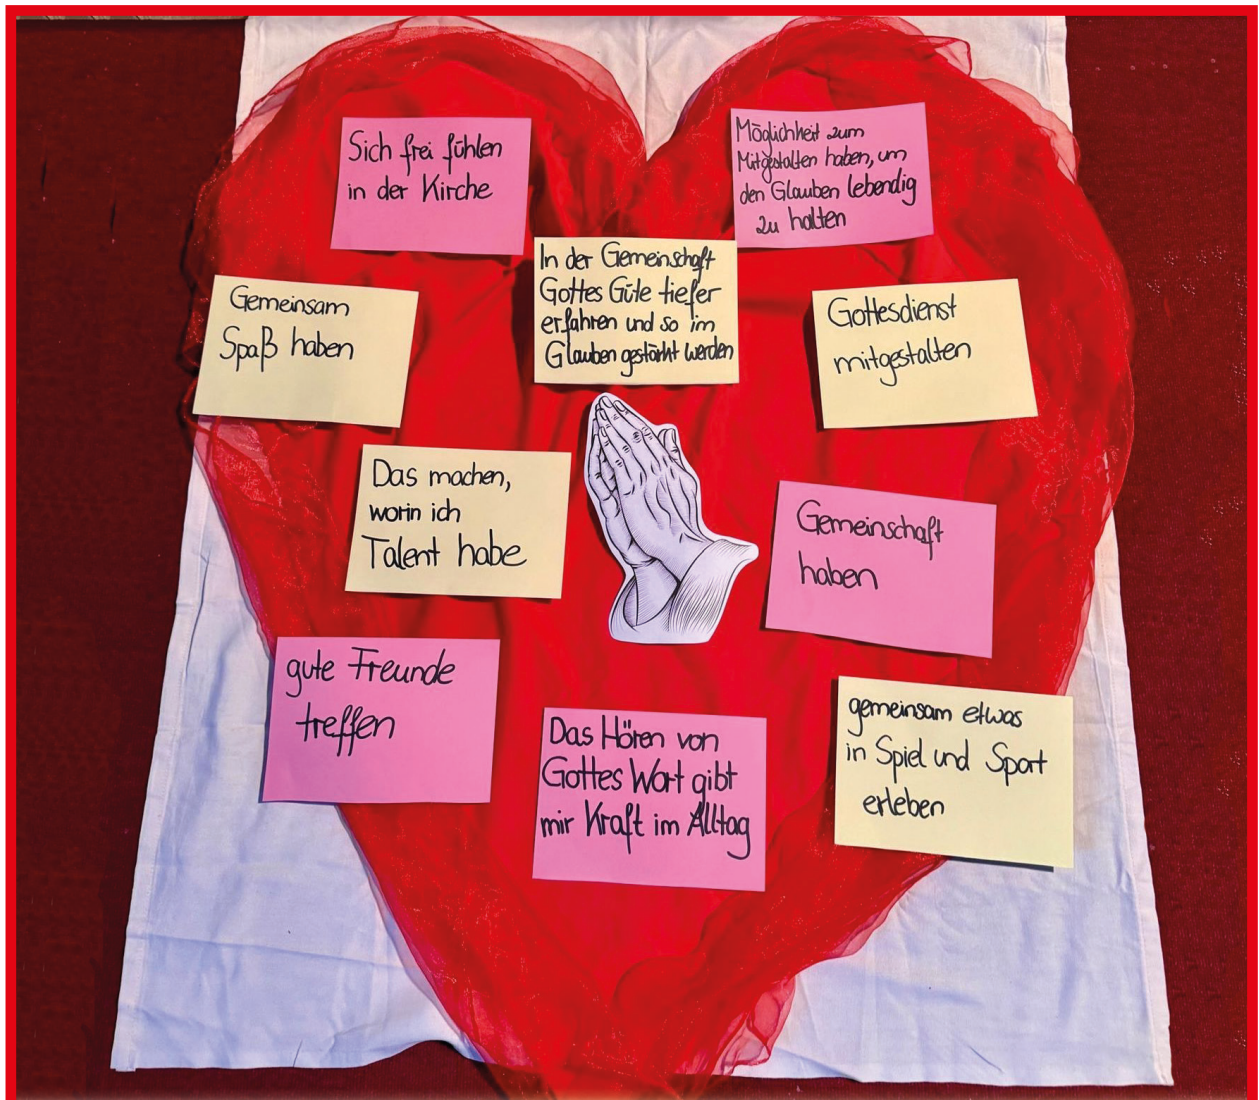 Sich frei fühlen
in der Kirche
Möglichkeit zum
Mitgestalten haben, um
den Glauben lebendig
zu halten
In der Gemeinschaft
Gottes Güte tiefer
erfahren und so im
Glauben gestärkt werden
Gemeinsam
Spaß haben
Gottesdienst
mitgestalten
Das machen,
worin ich
Talent habe
Gemeinschaft
haben
gute Freunde
treffen
Das Hören von
Gottes Wort gibt
mir Kraft im Alltag
gemeinsam etwas
in Spiel und Sport
erleben